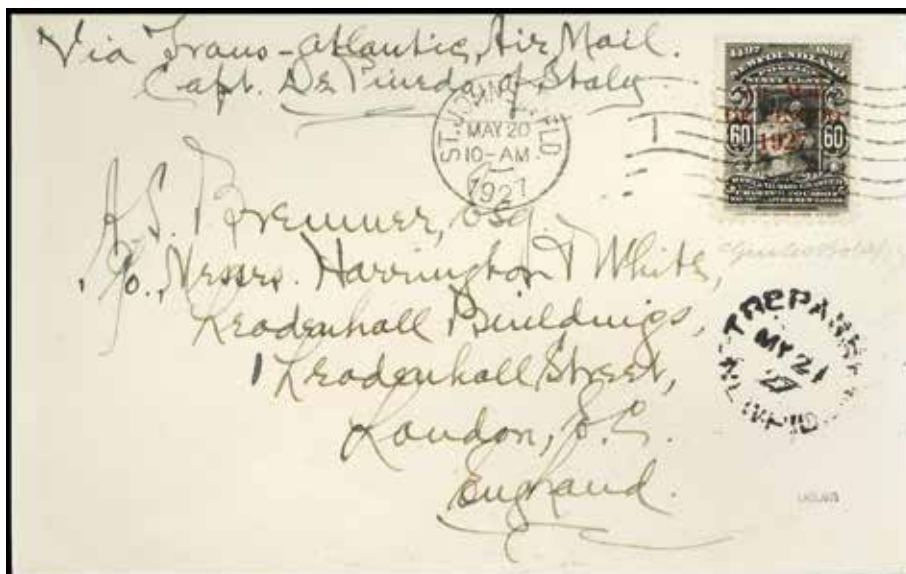 Via Trans-Atlantic, Air Mail.
Capt. De Pinedo of Italy
ST. JOHN'S NFLD
MAY 20
10-AM
1927
NEWFOUNDLAND
60 60
1927
Bremner, Esq.
c/o. Messrs. Harrington & White,
Leadenhall Buildings,
1 Leadenhall Street,
London, E.C.
England.
TREPASSEY
MY 21
27
NFLD